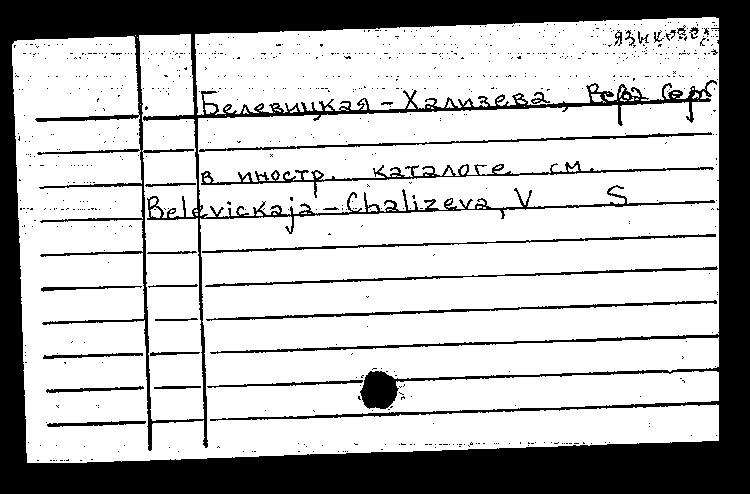 языковед
Белевицкая-Хализева, Вера Серг
в иностр. каталоге см.
Belevickaja-Chalizeva, V S